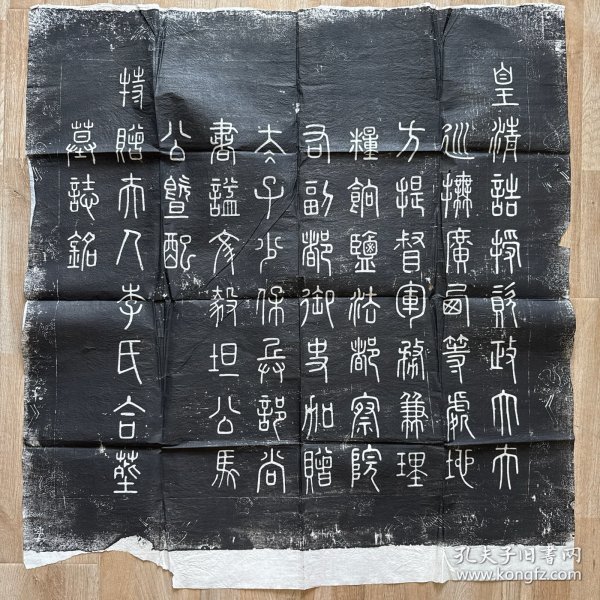 皇清誥授資政大夫
巡撫廣西等處地
方提督軍務兼理
糧餉鹽法都察院
右副都御史加贈
太子少保兵部尚
書謚文毅坦公馬
公暨配
特贈夫人李氏合葬
墓誌銘
孔夫子旧书网
www.kongfz.com